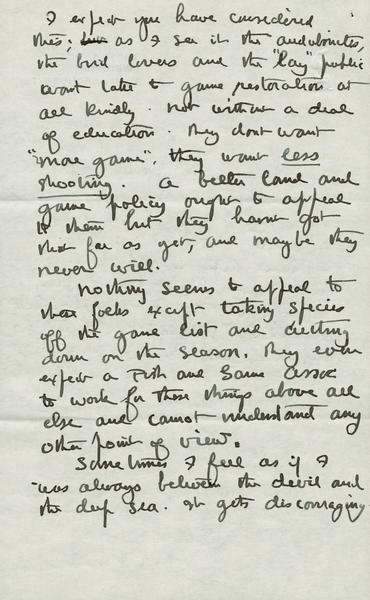 I expect you have considered
this, but as I see it the audubonites,
the bird lovers and the "lay" public
wont take to game restoration at
all kindly. not without a deal
of education. They dont want
"more game", they want less
shooting. A better land and
game policy ought to appeal
to them but they havnt got
that far as yet, and maybe they
never will.
Nothing seems to appeal to
these folks except taking species
off the game list and cutting
down on the season. They even
expect a Fish and Game Assoc
to work for those things above all
else and cannot understand any
other point of view.
Sometimes I feel as if I
was always between the devil and
the deep sea. It gets discouraging